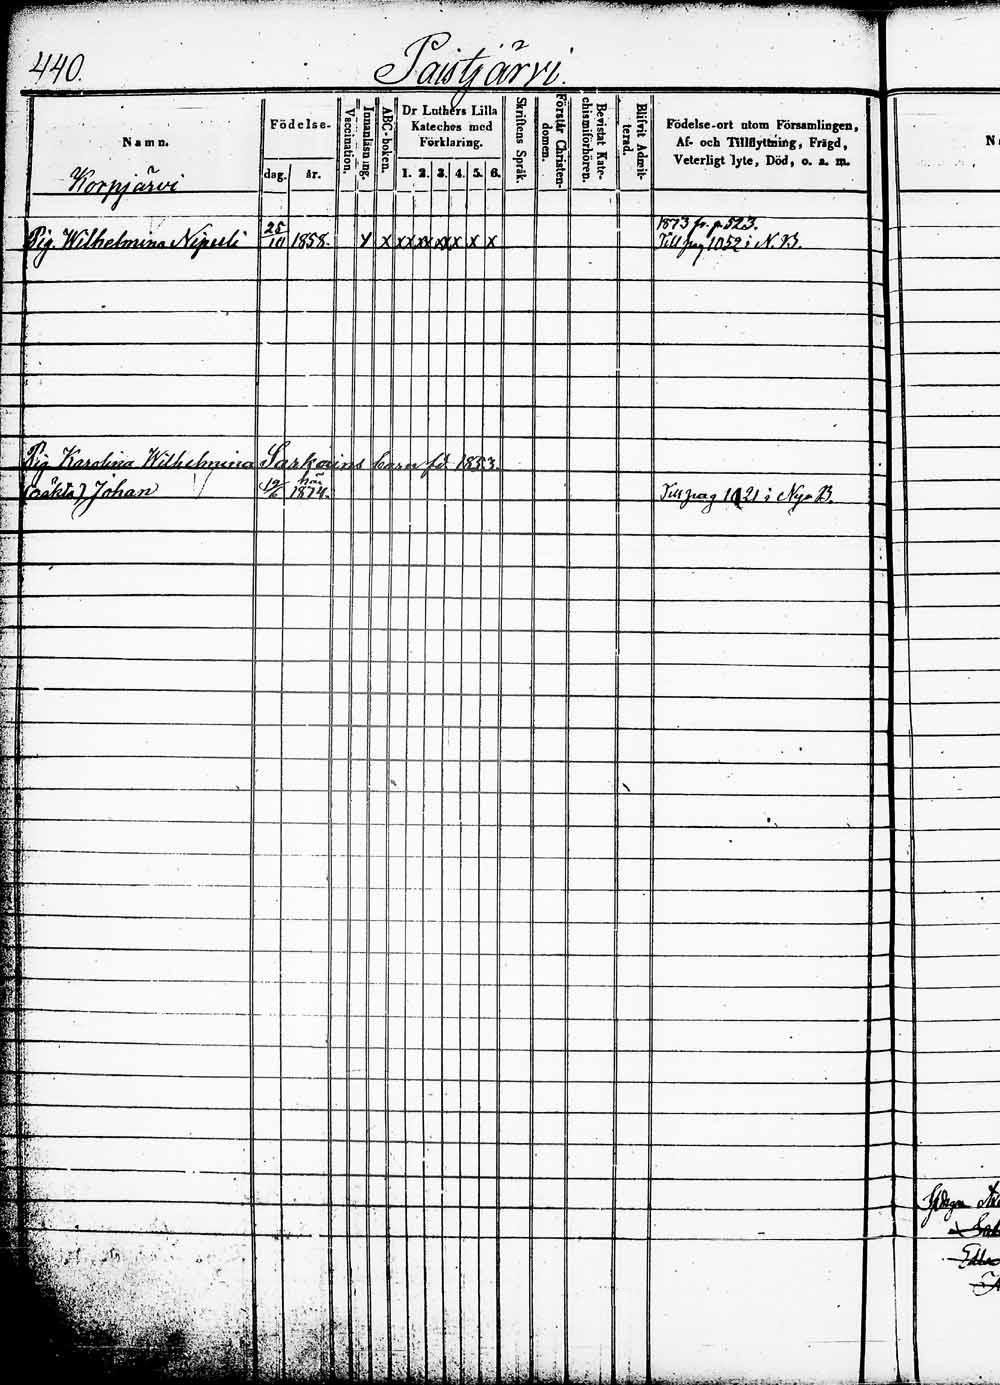 440.
Paistjärvi.
Namn.
Födelse-
dag.
år.
Vaccination.
Innanläsning.
ABC-boken.
Dr Luthers Lilla
Kateches med
Förklaring.
1. 2. 3. 4. 5. 6.
Skriftens Språk.
Förstår Christen-
domen.
Bevistat Kate-
chismiförhören.
Blifvit Admit-
terad.
Födelse-ort utom Församlingen,
Af- och Tillflyttning, Frägd,
Veterligt lyte, Död, o. s. m.
Korpjärvi
1873 fr. p. 523.
Pig Wilhelmina 25/10 1858. x x x x x x x x Till pag 1052 i N. B.
Pig Karolina Wilhelmina Sarkovins barn fd 1853.
(oäkta) Johan 12/6 1874. Till pag 1121 i Nya B.